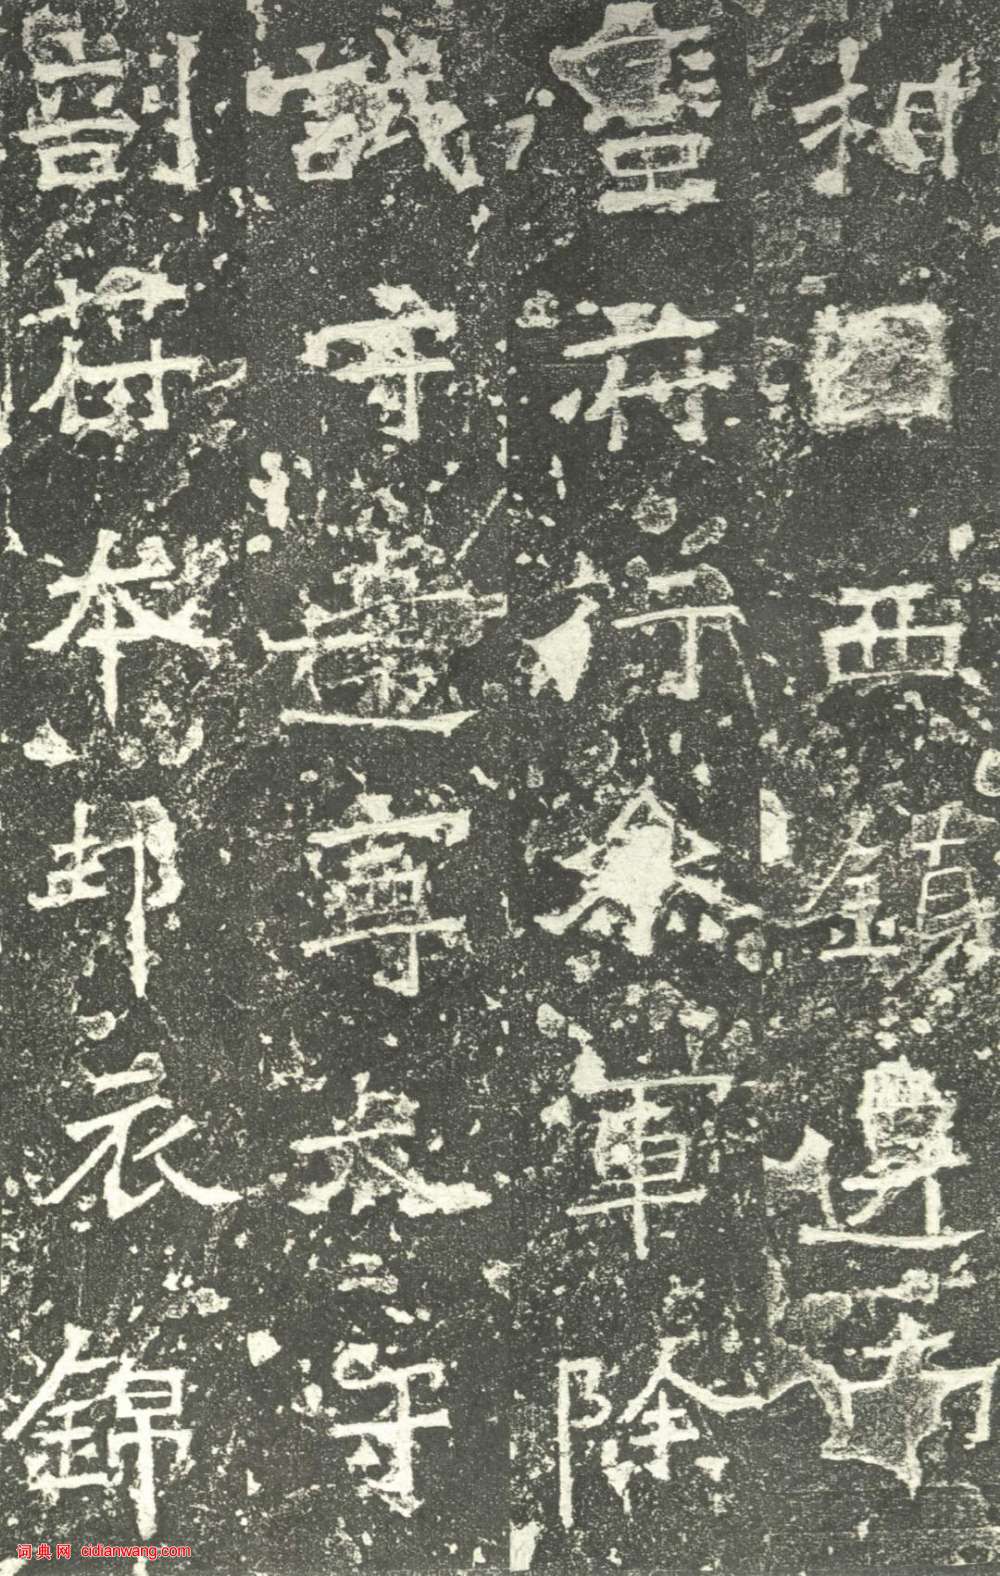 相西鎮遷南
蠻府行參軍除
試守建寧太守
剖符本邦衣錦
词典网 cidianwang.com